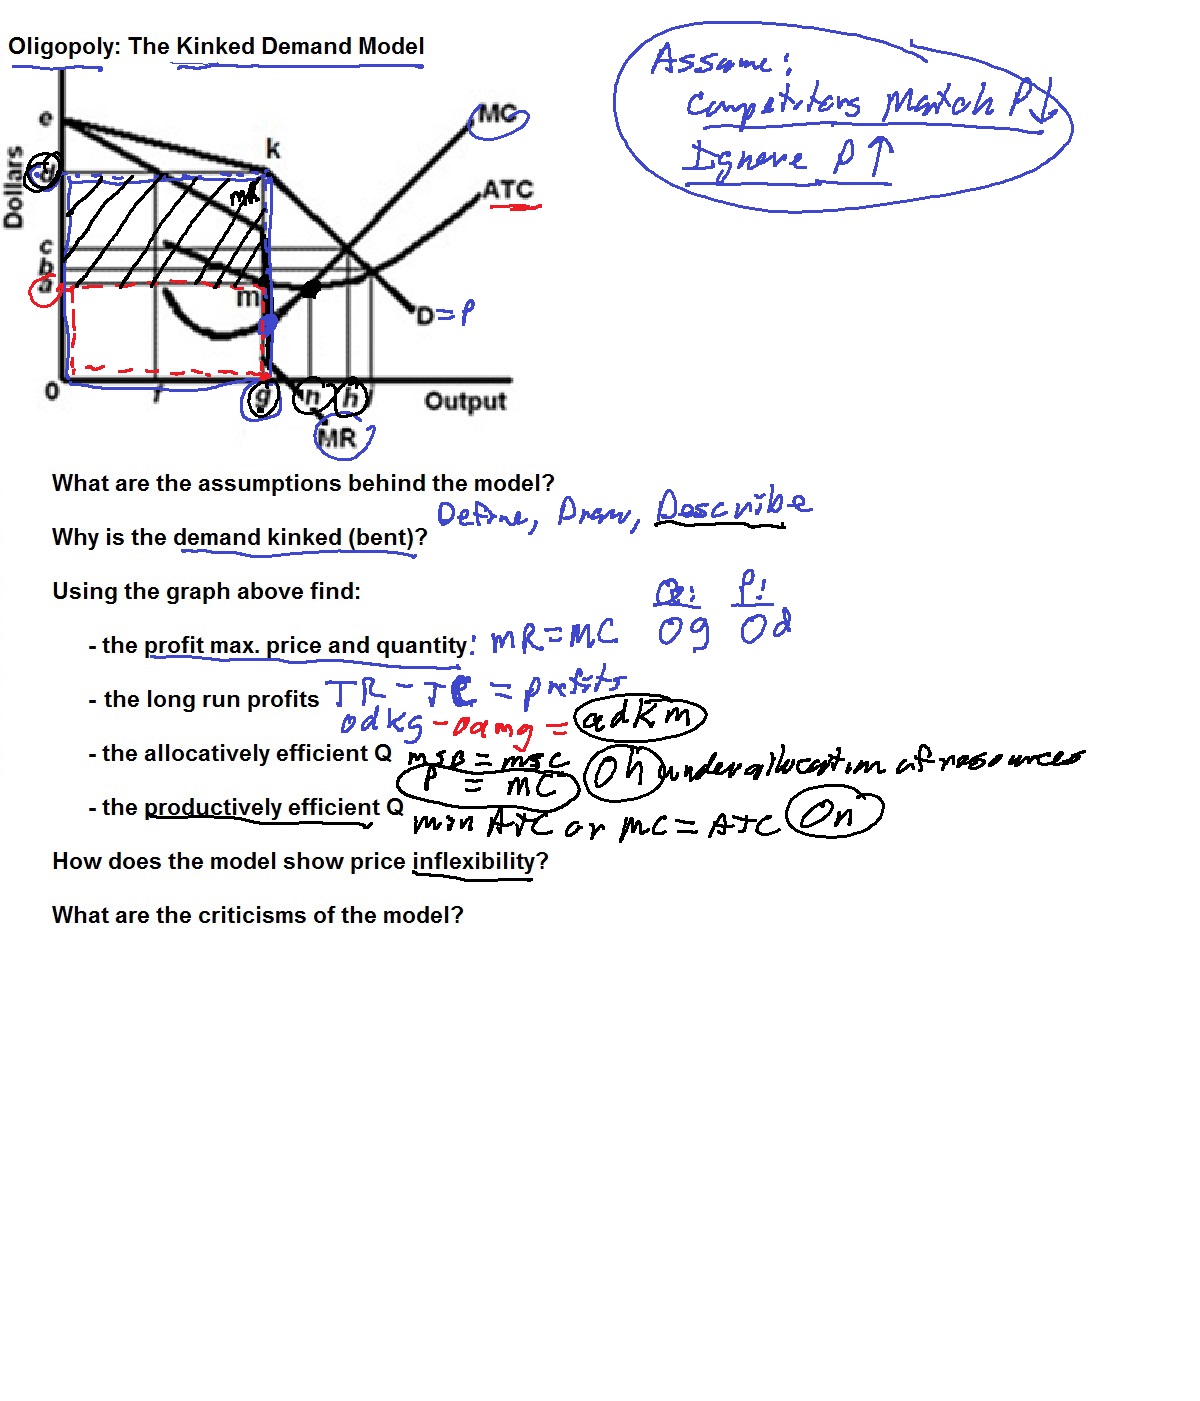 Oligopoly: The Kinked Demand Model
Assume:
Competitors Match P↓
Ignore P↑
Dollars
e
k
MC
d
MR
ATC
c
b
a
m
D = P
0
f
g
n
h
i
Output
MR
What are the assumptions behind the model?
Define, Draw, Describe
Why is the demand kinked (bent)?
Using the graph above find:
Q: P:
- the profit max. price and quantity: MR = MC Og Od
- the long run profits TR - TC = profits
Odkg - Oamg = adkm
- the allocatively efficient Q MSB = MSC
P = MC Oh underallocation of resources
- the productively efficient Q min ATC or MC = ATC On
How does the model show price inflexibility?
What are the criticisms of the model?